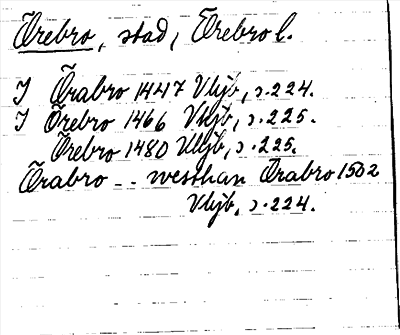 Örebro, stad, Örebro l.
I Örabro 1447 Vhjb, s. 224.
I Örebro 1466 Vhjb, s. 225.
Örebro 1480 Vhjb, s. 225.
Örabro -- westhan Örabro 1502
Vhjb, s. 224.